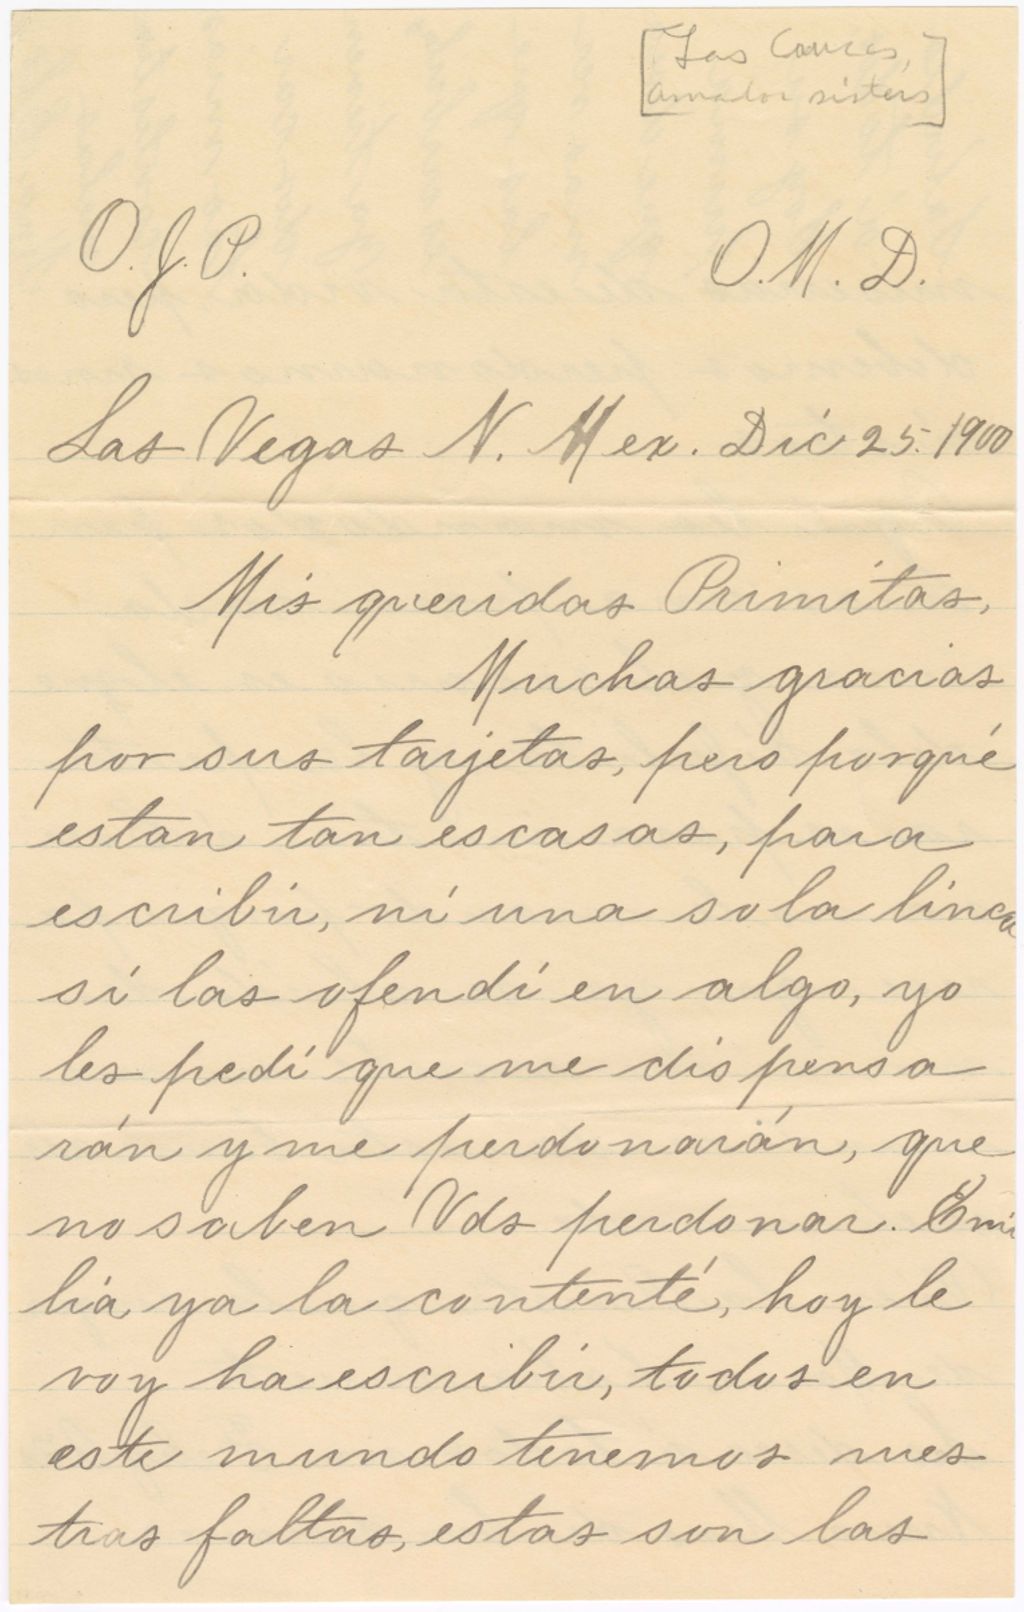 [Las Cruces,
Amador sisters]
O. J. P. O. M. D.
Las Vegas N. Mex. Dić 25. 1900
Mis queridas Primitas,
Muchas gracias
por sus tarjetas, pero porqué
estan tan escasas, para
escribir, ni una sola linea
sí las ofendí en algo, yo
les pedí que me dispensa
rán y me perdonarán, que
no saben Vds perdonar. Emi
lia ya la contenté, hoy le
voy ha escribir, todos en
este mundo tenemos nues
tras faltas, estas son las